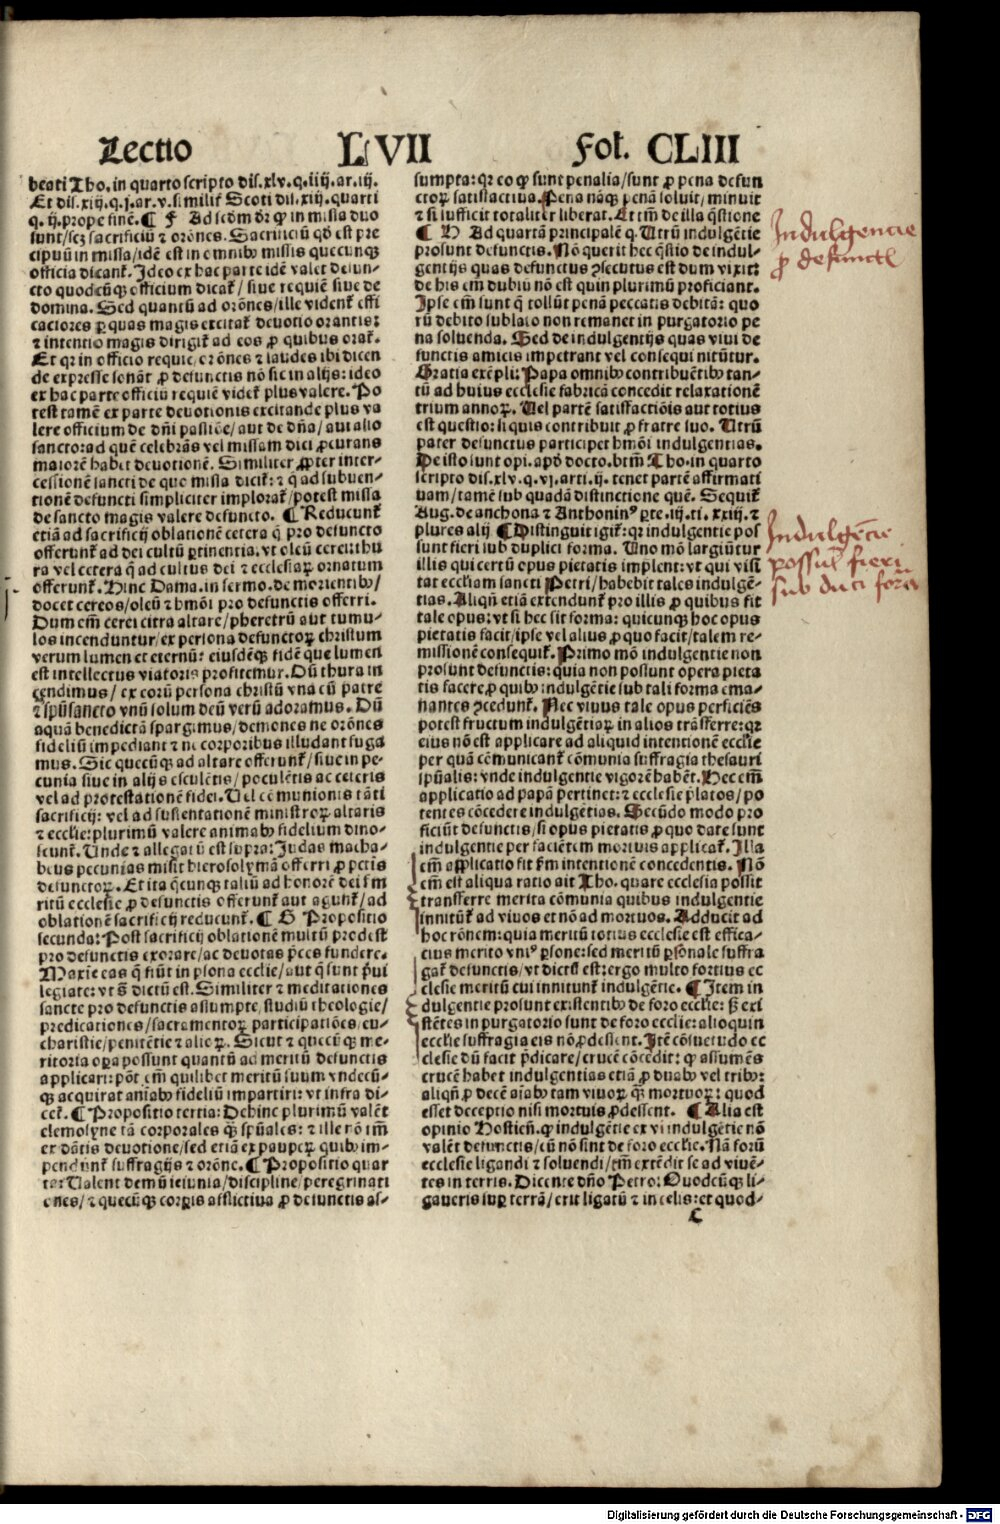 Lectio LVII Fol. CLIII
beati Tho. in quarto scripto dis. xlv. q. iiij. ar. iij.
Et dis. xiij. q. j. ar. v. similiṫ Scoti dis. xiij. quarti
q. ij. prope finē. ¶ F Ad scḋm dr̄ qꝙ in missa duo
sunt/scꝫ sacrificiū ⁊ orōnes. Sacrificiū qḋ est pre
cipuū in missa/idē est in omnibꝰ missis quecunqꝫ
officia dicant᷑. Ideo ex hac parte idē valet defun-
cto quodcūqꝫ officium dicat᷑/ siue requiē siue de
domina. Sed quantū ad orōnes/ille vident᷑ effi
caciores ꝑ quas magis excitat᷑ deuotio orantis:
⁊ intentio magis dirigit᷑ ad eos ꝓ quibus orat᷑.
Et qꝛ in officio requiē orōnes ⁊ laudes ibi dicen
de expresse sonāt ꝓ defunctis nō sic in alijs: ideo
ex hac parte officiū requiēm videt᷑ plus valere. Po
test tamē ex parte deuotionis excitande plus va
lere officium de dn̄i passiōe/ aut de dn̄a/ aut alio
sanctorū ad quē celebrās vel missam dici ꝓcurans
maiorē habet deuotionē. Similiter ꝓpter inter-
cessionē sancti de quo missa dicit᷑: ⁊ q̇ ad subuen-
tionē defuncti simpliciter implorat᷑/potest missa
de sancto magis valere defuncto. ¶ Reducunt᷑
etiā ad sacrificij oblationē cetera q̄ pro defuncto
offerunt᷑ ad dei cultū ꝑtinentia. vt oleū cerei thu
ra vel cetera q̄ ad cultus dei ⁊ ecclesiaꝝ ornatum
offerunt᷑. Hinc Dama. in sermo. de morientibꝰ/
docet cereos/oleū ⁊ hmōi pro defunctis offerri.
Dum em̄ cerei citra altare/pheretrū aut tumu-
los incenduntur/ex persona defunctoꝝ christum
verum lumen et eternū: eiusdēqꝫ fidē que lumen
est intellectus viatoris profitemur. Dū thura in
cendimus/ ex eorū persona christū vna cū patre
⁊ sp̄usancto vnū solum deū verū adoramus. Dū
aquā benedictā spargimus/demones ne orōnes
fideliū impediant ⁊ ne corporibus illudant fuga
mus. Sic quecūqꝫ ad altare offerunt᷑/siue in pe-
cunia siue in alijs esculētis/poculētis ac ceteris
vel ad protestationē fidei. Vel cōmunionis tāti
sacrificij: vel ad sustentationē ministroꝝ altaris
⁊ ecclie: plurimū valere animabꝰ fidelium dino-
scunt᷑. Unde ⁊ allegatū est supra: Judas macha-
beus pecunias misit hierosolymā offerri ꝓ pctīs
defunctoꝝ. Et ita q̄cunqꝫ taliū ad honorē dei ẜm
ritū ecclesie ꝓ defunctis offerunt᷑ aut agunt᷑/ad
oblationē sacrificij reducunt᷑. ¶ G Propositio
secunda: Post sacrificij oblationē multū prodest
pro defunctis exorare/ac deuotas p̄ces fundere.
Maxie eas q̄ fiūt in ꝑsona ecclie/aut q̄ sunt p̄ui
legiate: vt s̄ dictū est. Similiter ⁊ meditationes
sancte pro defunctis assumpte/studiū theologie/
predicationes/sacramentoꝝ participatiōes/eu-
charistie/penitētie ⁊ alioꝝ. Sicut ⁊ quecūqꝫ me-
ritoria oꝑa possunt quantū ad meritū defunctis
applicari: pōt em̄ quilibet meritū suum vndecū-
qꝫ acquirat aīabꝰ fideliū impartiri: vt infra di-
cet᷑. ¶ Propositio tertia: Dehinc plurimū valēt
elemosyne tā corporales q̄ꝫ sp̄uales: ⁊ ille nō tm̄
ex dātis deuotione/sed etiā ex pauperꝝ quibꝰ im-
pendunt᷑ suffragijs ⁊ orōne. ¶ Propositio quar
ta: Valent demū ieiunia/discipline/peregrinati
ones/⁊ quecūqꝫ corꝑis afflictiua ꝓ defunctis as-
sumpta: qꝛ eo qꝙ sunt penalia/sunt ꝓ pena defun
ctoꝝ satisfactiua. Pena nāqꝫ penā soluit/minuit
⁊ si sufficit totaliter liberat. Et tm̄ de illa q̄stione
¶ H Ad quartā principalē q. Utrū indulgētie
prosunt defunctis. Nō querit hec q̄stio de indul-
gentijs quas defunctus ꝯsecutus est dum vixit:
de his em̄ dubiū nō est quin plurimū proficiant.
Ipse em̄ sunt q̄ tollūt penā peccatis debitā: quo
rū debito sublato non remanet in purgatorio pe
na soluenda. Sed de indulgentijs quas viui de
functis amicis impetrant vel consequi nitūtur.
Gratia exēpli: Papa omnibꝰ contribuētibꝰ tan-
tū ad huius ecclesie fabricā concedit relaxationē
trium annoꝝ. Vel partē satisfactiōis aut totius
est questio: si quis contribuit ꝓ fratre suo. Utrū
pater defunctus participet hmōi indulgentias.
De isto sunt opi. apḋ docto. btm̄ Tho. in quarto
scripto dis. xlv. q. vj. arti. ij. tenet partē affirmati
uam/tamē sub quadā distinctione quē. Sequit᷑
Aug. de anchona ⁊ Anthoninꝰ ꝑte. iij. ti. xxiij. ⁊
plures alij ¶ Distinguit igit᷑: qꝛ indulgentie pos
sunt fieri sub duplici forma. Uno mō largiūtur
illis qui certū opus pietatis implent: vt qui visi
tat eccliam sancti Petri/habebit tales indulgē-
tias. Aliqn̄ etiā extendunt᷑ pro illis ꝓ quibus fit
tale opus: vt si hec sit forma: quicunqꝫ hoc opus
pietatis facit/ipse vel alius ꝓ quo facit/talem re-
missionē consequit᷑. Primo mō indulgentie non
prosunt defunctis: quia non possunt opera pieta
tis facere ꝓ quibꝰ indulgētie sub tali forma ema-
nantes ꝯcedunt᷑. Nec viuus tale opus perficiēs
potest fructum indulgētiaꝝ in alios trāsferre: qꝛ
eius nō est applicare ad aliquid intentionē ecclie
per quā cōmunicant᷑ cōmunia suffragia thesauri
sp̄ualis: vnde indulgentie vigorē habēt. Hec em̄
applicatio ad papā pertinet: ⁊ ecclesie p̄latos/po
tentes cōcedere indulgētias. Secūdo modo pro
ficiūt defunctis/si opus pietatis ꝓ quo date sunt
indulgentie per faciētem mortuis applicat᷑. Illa
em̄ applicatio fit ẜm intentionē concedentis. Nō
em̄ est aliqua ratio ait Tho. quare ecclesia possit
transferre merita cōmunia quibus indulgentie
innitūt᷑ ad viuos et nō ad mortuos. Adducit ad
hoc rōnem: quia meritū totius ecclesie est effica-
cius merito vniꝰ ꝑsone: sed meritū ꝑsonale suffra
gat᷑ defunctis/vt dictū est: ergo multo fortius ec
clesie meritū cui innitunt᷑ indulgētie. ¶ Item in
dulgentie prosunt existentibꝰ de foro ecclie: sꝫ exi
stētes in purgatorio sunt de foro ecclie: alioquin
ecclie suffragia eis nō ꝓdessent. Itē cōsuetudo ec
clesie dū facit p̄dicare/crucē cōcedit: qꝙ assumēs
crucē habet indulgentias etiā ꝓ duabꝰ vel tribꝰ:
aliqn̄ ꝓ decē aīabꝰ tam viuoꝝ q̄ꝫ mortuoꝝ: quod
esset deceptio nisi mortuis ꝓdessent. ¶ Alia est
opinio Hostien̄. qꝙ indulgētie ex vi indulgētie nō
valēt defunctis/cū nō sint de foro ecclie. Nā forū
ecclesie ligandi ⁊ soluendi/tm̄ extēdit se ad viuē-
tes in terris. Dicente dn̄o Petro: Quodcūqꝫ li-
gaueris suꝑ terrā/erit ligatū ⁊ in celis: et quod-
c
Indulgencie
ꝓ defunctꝭ
Indulgēcie
possut fieri
sub duci forā
Digitalisierung gefördert durch die Deutsche Forschungsgemeinschaft - DFG